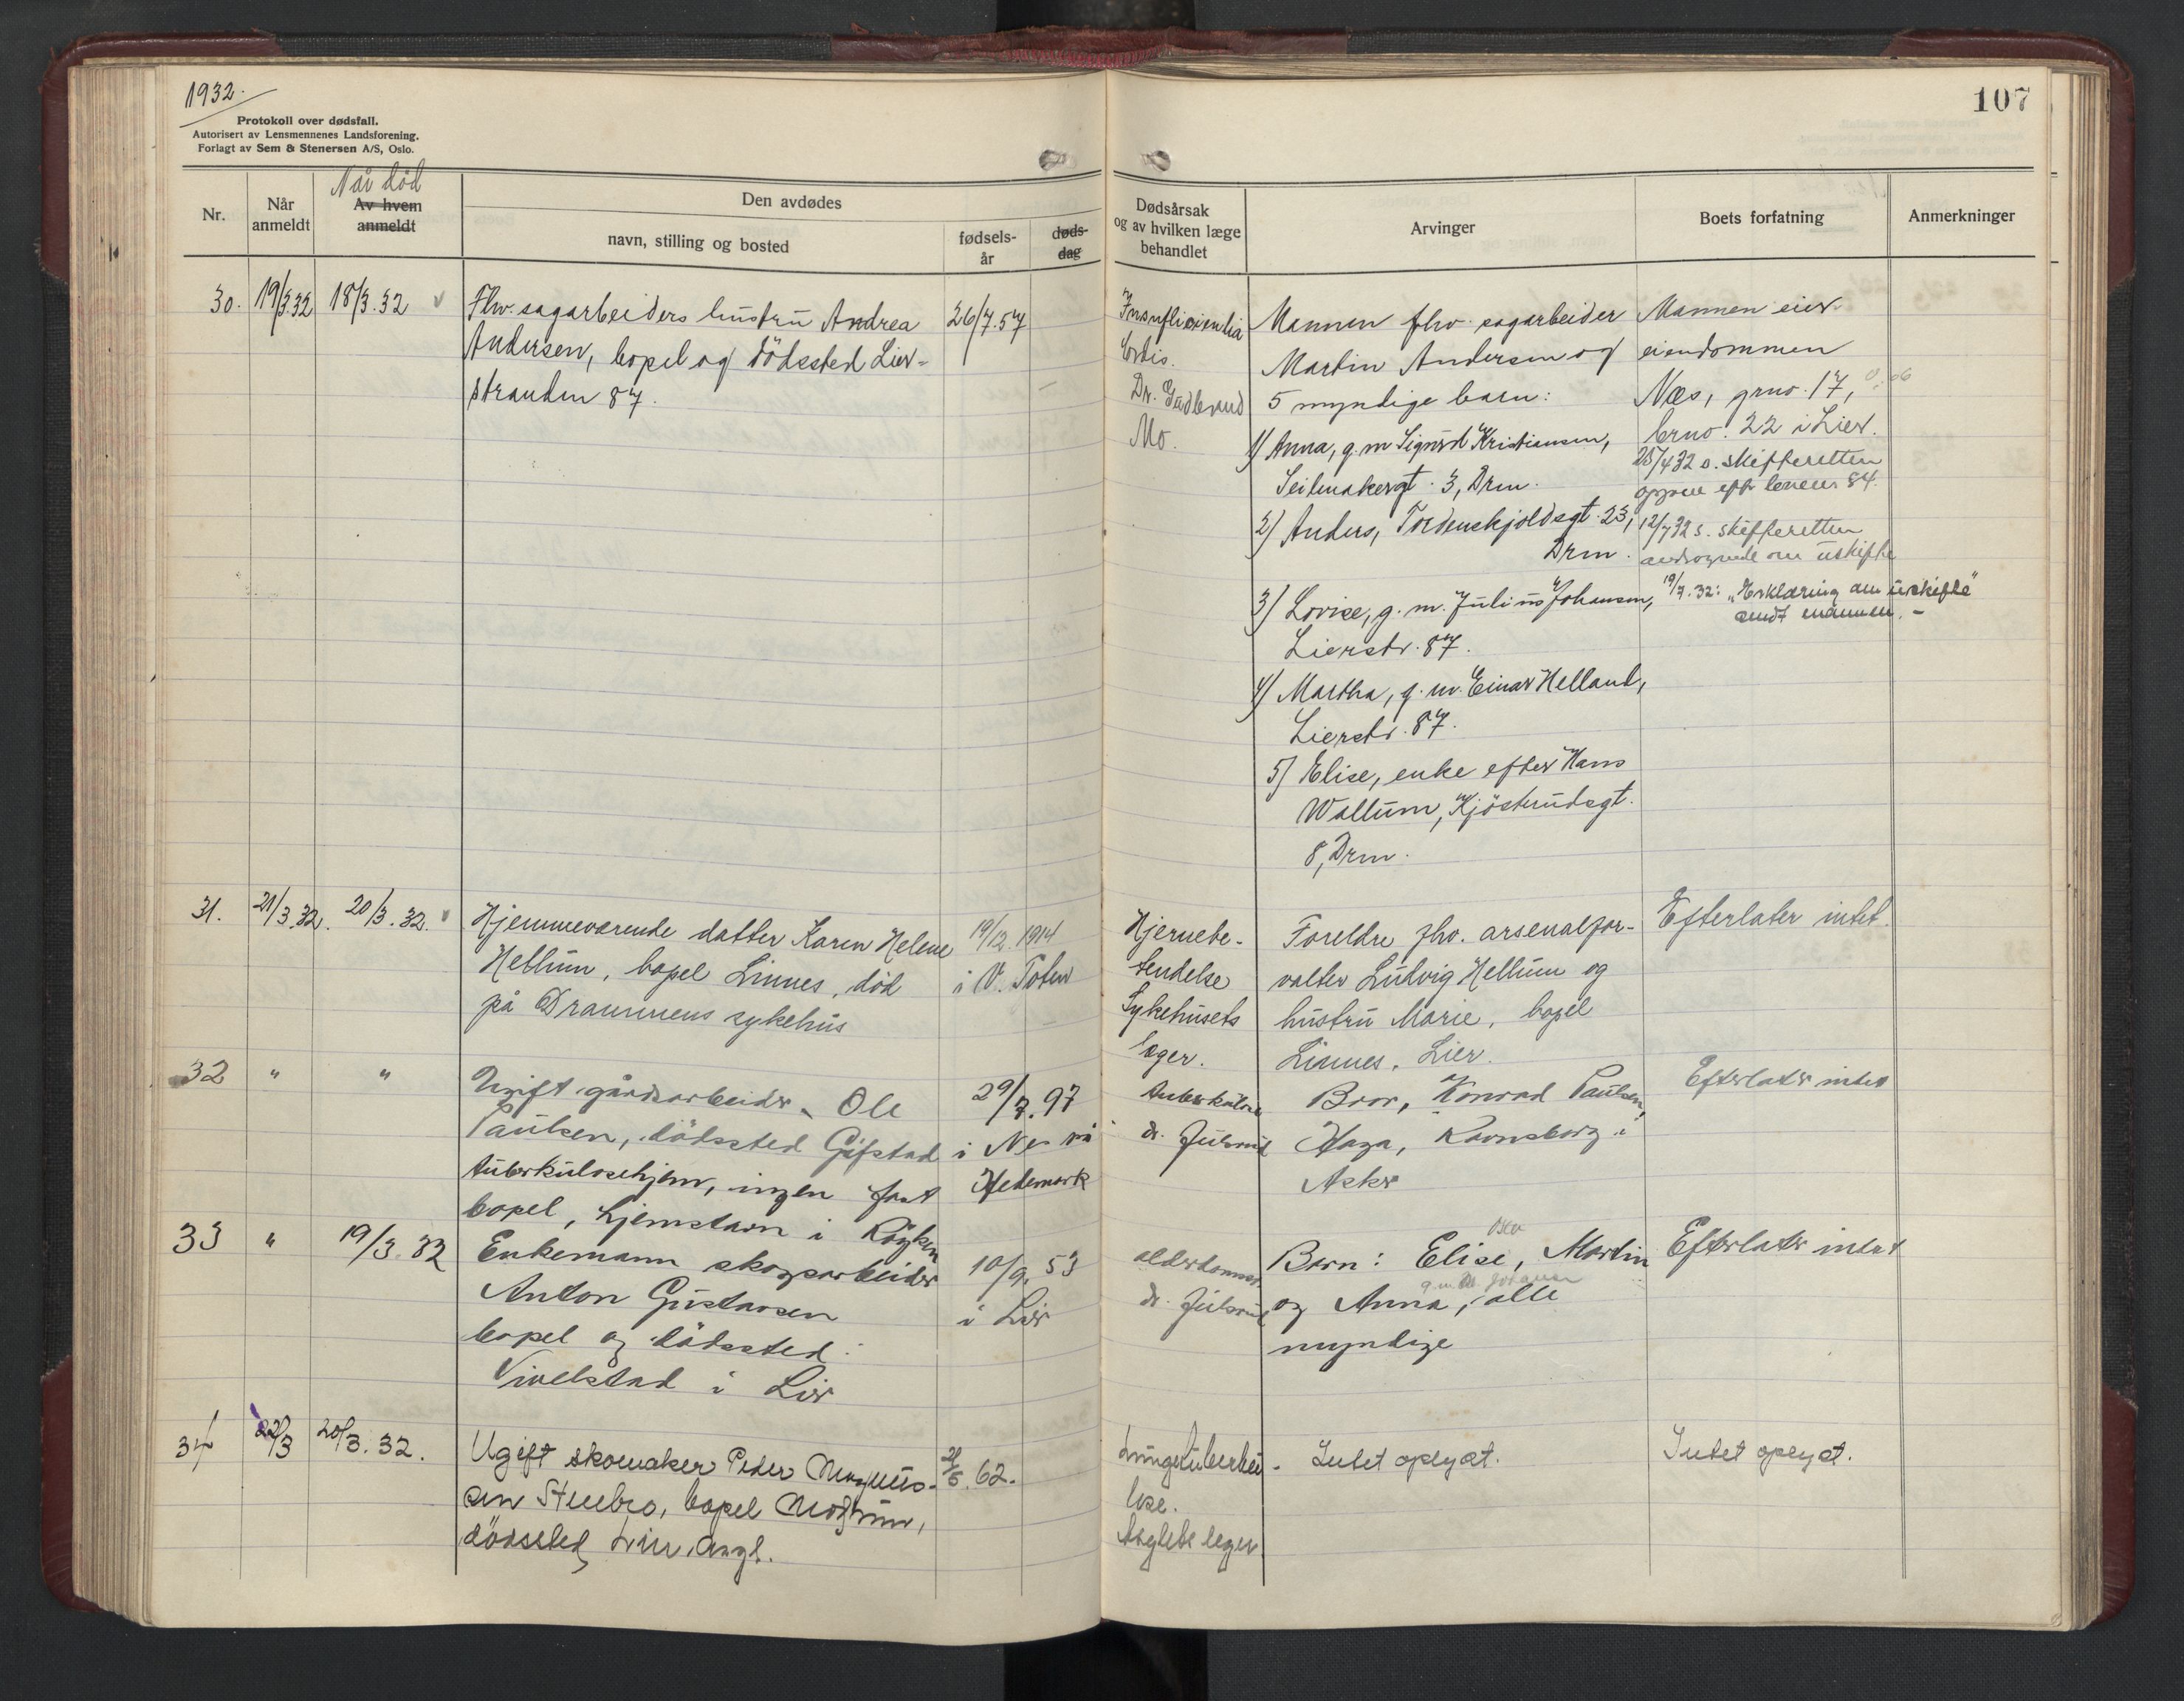 1932.
Protokoll over dødsfall.
Autorisert av Lensmennenes Landsforening.
Forlagt av Sem & Stenersen A/S, Oslo.
Nr.
Når anmeldt
Når død
Av hvem anmeldt
Den avdødes
navn, stilling og bosted
fødsels-
år
døds-
dag
30. 19/3 32 18/3.32
Fhv. sagarbeiders hustru Andrea
Andersen, bopel og dödssted Lier-
stranden 87.
26/7.57
31. 21/3.32. 20/3.32.
Hjemmeværende datter Karen Helene
Hellum, bopel Linnes, död
på Drammens sykehus
19/12.1914
i V. Toten
32 " "
Ugift gårdsarbeider Ole
Paulsen, dödssted Gifstad
tuberkulosehjem, ingen fast
bopel, hjemstavn i Röyken
29/7.97
i Nes på
Hedemark
33 " 19/3.32
Enkemann skogsarbeider
Anton Gustavsen
bopel og dödssted:
Vivelstad i Lier
10/9. 53
i Lier
34 22/3 20/3.32.
Ugift skomaker Peder Magnus-
sen Steebro, bopel Modum,
dödssted Lier Asyl.
21/5.62.
107
Dødsårsak
og av hvilken læge
behandlet
Arvinger
Boets forfatning
Anmerkninger
Insufficientia
Cordis.
Dr. Gudbrand
Mo.
Mannen fhv. sagarbeider
Martin Andersen og
5 myndige barn:
1) Anna, g.m Sigurd Kristiansen,
Seilmakergt. 3, Drm.
2) Anders, Tordenskjoldsgt. 23,
Drm.
3) Lovise, g.m. Julius Johansen,
Lierstr. 87.
4) Martha, g.m. Einar Helland,
Lierstr. 87.
5) Elise, enke efter Hans
Wallum, Kjösterudsgt.
8, Drm.
Mannen eier
eiendommen
Næs, grno. 17,
brno. 22 i Lier.
25/4 32 s. skifteretten
12/7 32 s. skifteretten
andragende om uskifte
19/7.32: "Erklæring om uskifte"
sendt mannen. -
Hjernebe-
tendelse
Sykehusets
læger.
Foreldre fhv. arsenalfor-
valter Ludvig Hellum og
hustru Marie, bopel
Linnes, Lier.
Efterlater intet.
Tuberkulose
dr. Julsrud
Bror, Konrad Paulsen,
Haga, Ravnsborg i
Asker
Efterlater intet
alderdommen
dr. Julsrud
Barn: Elise, Martin
og Anna, alle
myndige
Efterlater intet
Lungetuberku-
lose.
Asylets leger
Intet oplyst.
Intet oplyst.